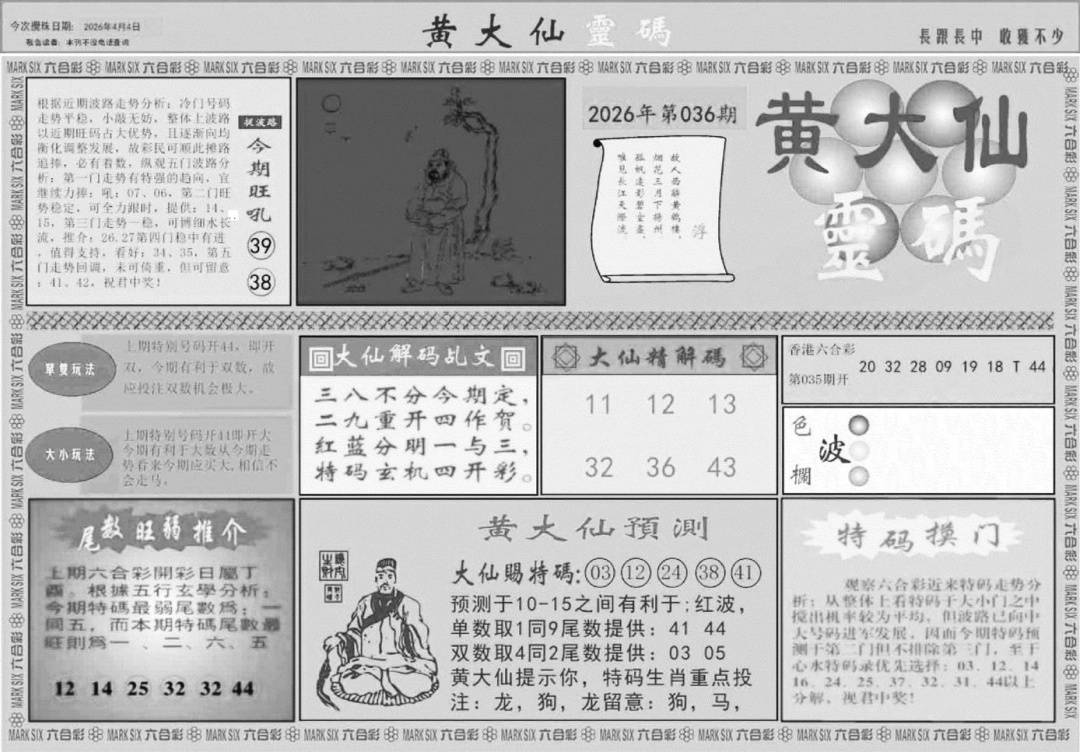 今次攪珠日期: 2026年4月4日
敬告读者: 本刊不设电话查询
黄大仙靈碼
長跟長中 收獲不少
MARK SIX 六合彩 MARK SIX 六合彩 MARK SIX 六合彩 MARK SIX 六合彩 MARK SIX 六合彩 MARK SIX 六合彩 MARK SIX 六合彩 MARK SIX 六合彩 MARK SIX 六合彩 MARK SIX 六合彩 MARK SIX 六合彩
根据近期波路走势分析: 冷门号码
走势平稳, 小敲无妨, 整体上波路
以近期旺码占大优势, 且逐渐向均
衡化调整发展, 故彩民可顺此摊路
追捧, 必有着数, 纵观五门波路分
析: 第一门走势有特强的趋向, 宜
继续力捧: 吼: 07、06, 第二门旺
势稳定, 可全力跟时, 提供: 14、
15, 第三门走势一稳, 可博细水长
流, 推介: 26.27第四门稳中有进
, 值得支持, 看好: 34、35, 第五
门走势回调, 未可倚重, 但可留意
: 41、42, 祝君中奖!
捉波路
今期旺吼
39
38
2026年第036期
故人西辞黄鹤楼,
烟花三月下扬州。
孤帆远影碧空尽,
唯见长江天际流。
浮
黄大仙
靈碼
單雙玩法
上期特别号码开44, 即开
双, 今期有利于双数, 故
应投注双数机会极大。
大小玩法
上期特别号码开44即开大
今期有利于大数从今期走
势看来今期应买大, 相信不
会走马。
大仙解码乩文
三八不分今期定,
二九重开四作贺。
红蓝分明一与三,
特码玄机四开彩。
大仙精解碼
11 12 13
32 36 43
香港六合彩
第035期开 20 32 28 09 19 18 T 44
色
波
欄
尾数旺弱推介
上期六合彩開彩日屬丁
酉。根據五行玄學分析:
今期特碼最弱尾數爲: 一
同五, 而本期特碼尾數最
旺則爲一、二、六、五
12 14 25 32 32 44
黄大仙預測
大仙賜特碼: 03 12 24 38 41
预测于10-15之间有利于; 红波,
单数取1同9尾数提供: 41 44
双数取4同2尾数提供: 03 05
黄大仙提示你, 特码生肖重点投
注: 龙, 狗, 龙留意: 狗, 马,
特码摸门
观察六合彩近来特码走势分
析: 从整体上看特码于大小门之中
搅出机率较为平均, 但波路已向中
大号码进军发展, 因而今期特码预
测于第二门但不排除第三门, 至于
心水特码录优先选择: 03. 12. 14
16. 24. 25. 37. 32. 31. 44以上
分解, 祝君中奖!
MARK SIX 六合彩 MARK SIX 六合彩 MARK SIX 六合彩 MARK SIX 六合彩 MARK SIX 六合彩 MARK SIX 六合彩 MARK SIX 六合彩 MARK SIX 六合彩 MARK SIX 六合彩 MARK SIX 六合彩 MARK SIX 六合彩